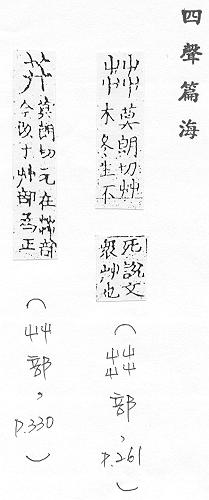 四聲篇海
茻莫朗切艸
木冬生不
死說文
眾艸也
（茻部，p.261）
莫朗切元在茻部
今改于艸部為正
（艸部，p.330）